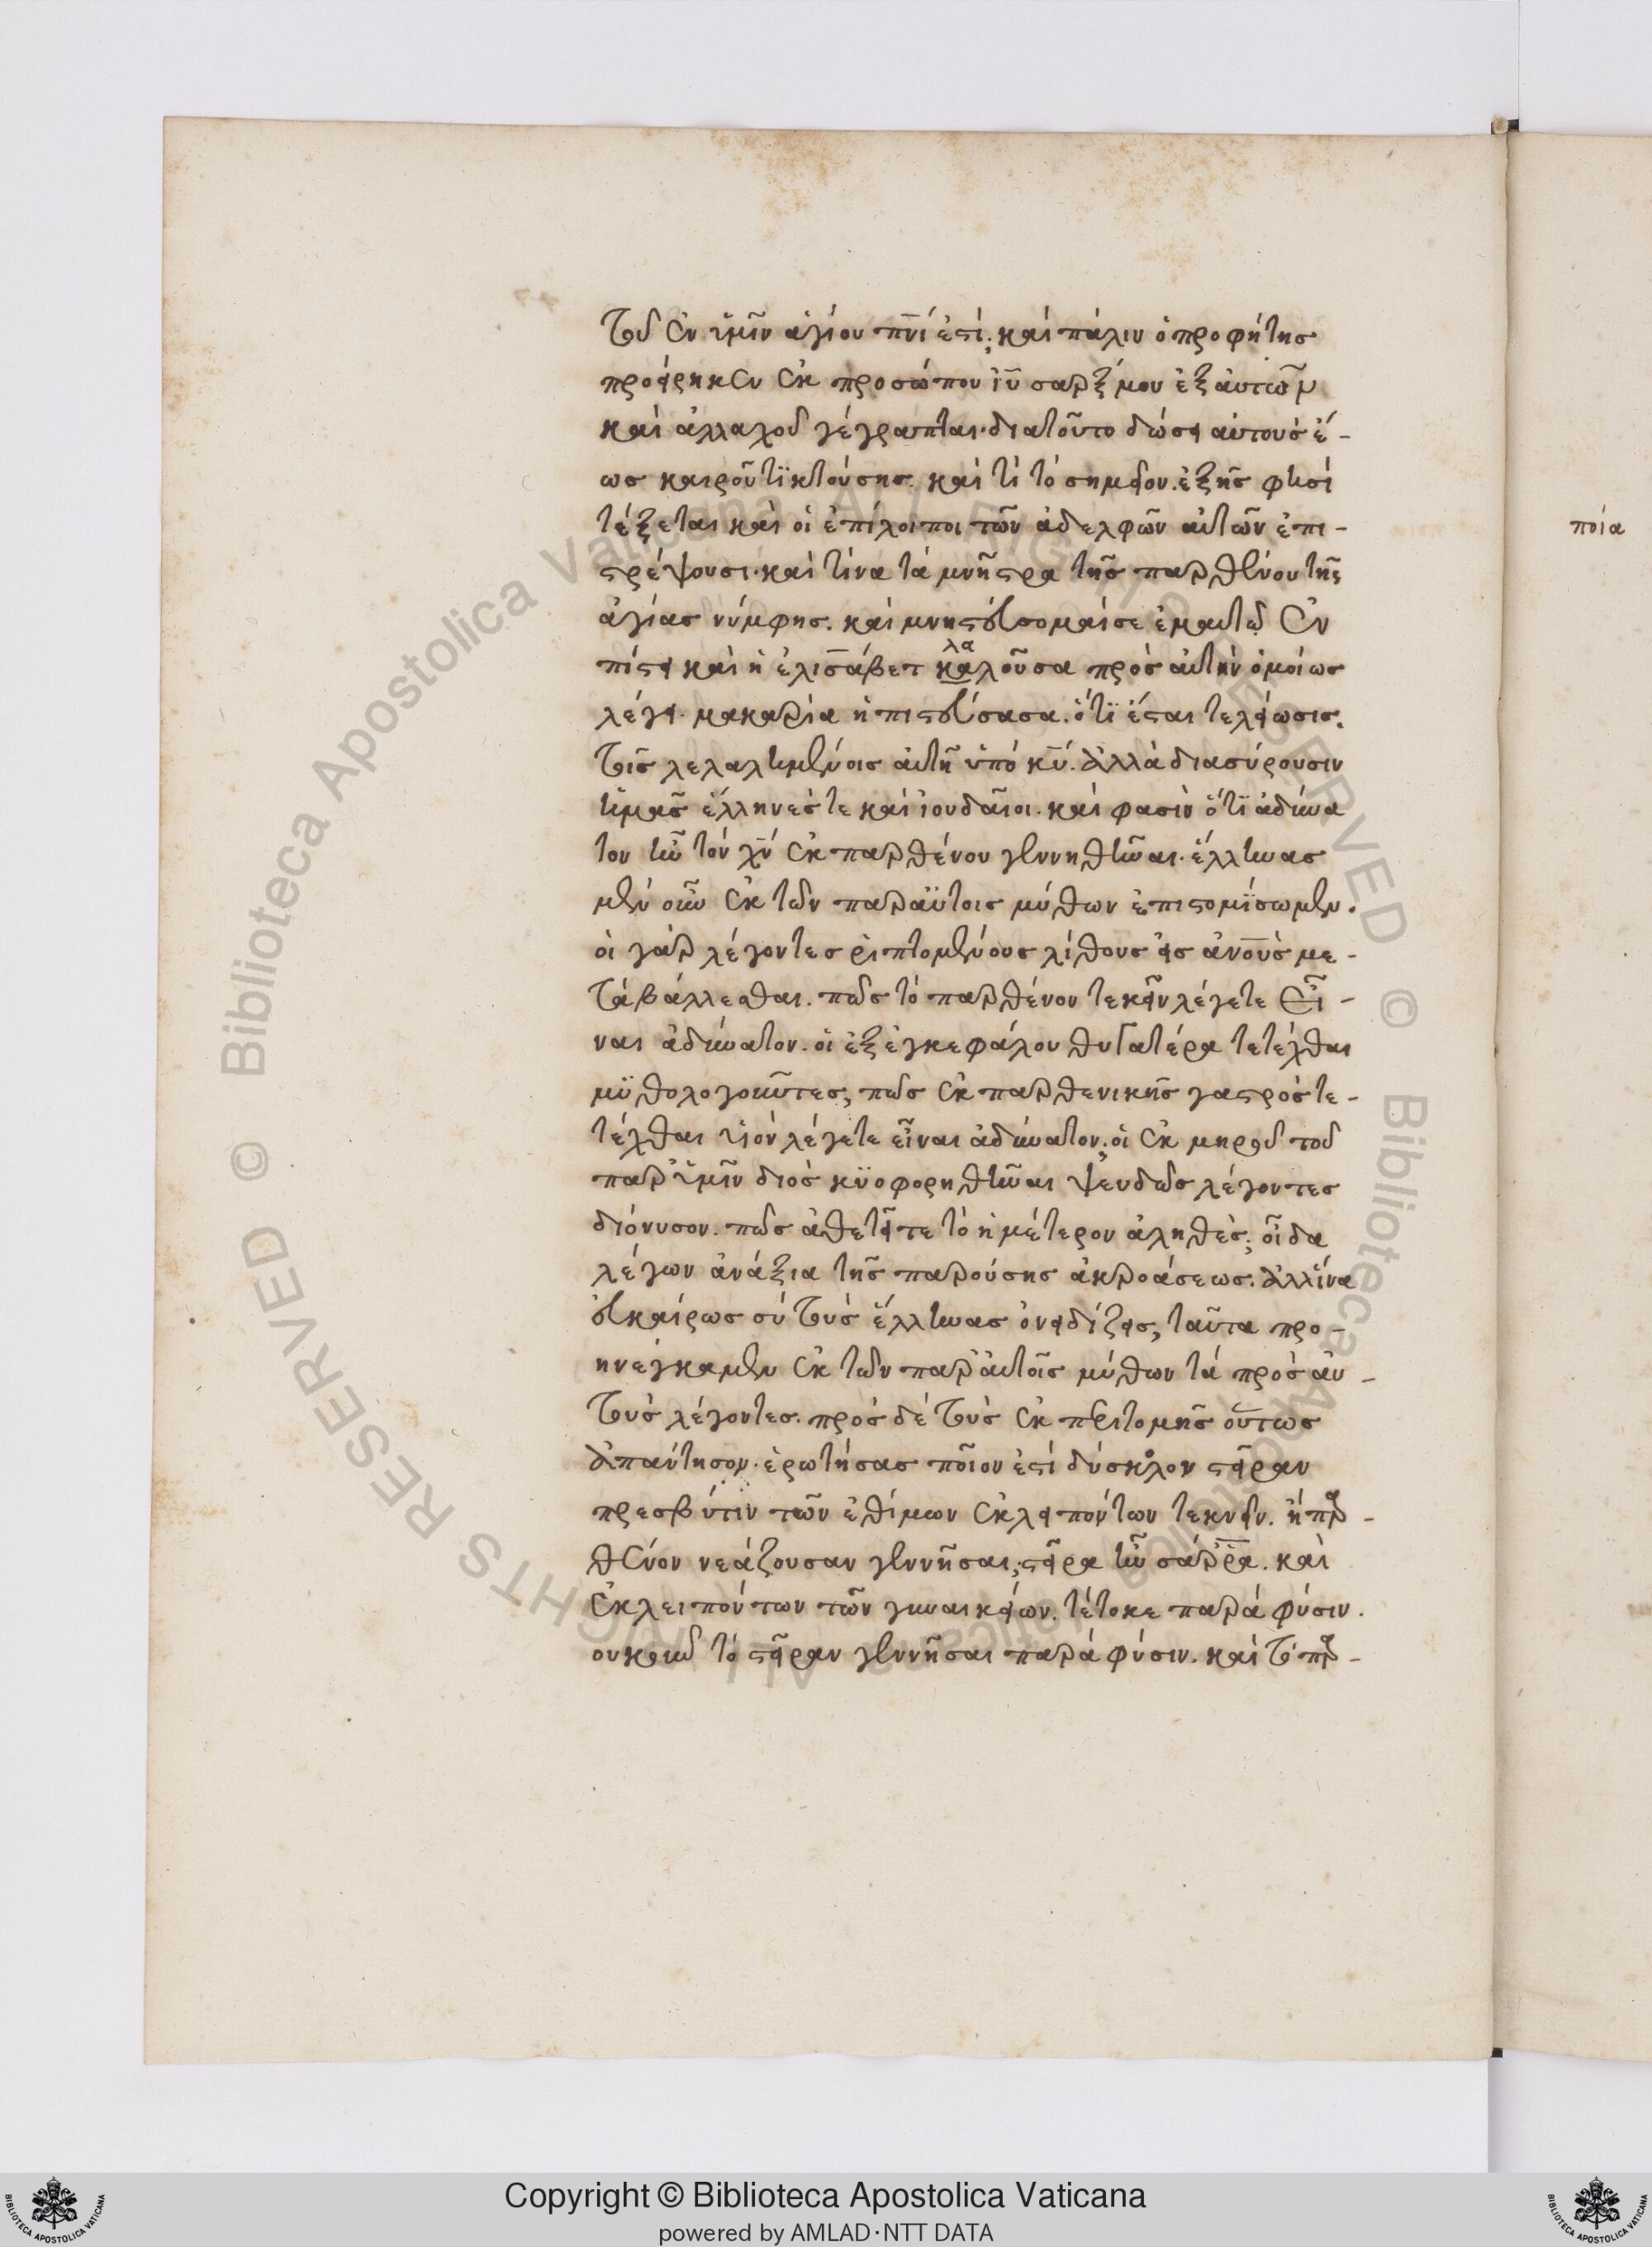 τοῦ ἐν ὑμῖν ἁγίου πν̅ί ἐστί; καὶ πάλιν ὁ προφήτης
προείρηκεν ἐκ προσώπου ἰ̅υ̅ σαρξ μου ἐξ ἀυτῶν
καὶ ἀλλαχοῦ γέγραπται· διατοῦτο δώσει αὐτοὺς ἕ-
ως καιροῦ τϊκτούσης. καὶ τί τὸ σημεῖον. ἑξῆς φησί
τέξεται καὶ οἱ ἐπίλοιποι τῶν ἀδελφῶν αὐτῶν ἐπι-
στρέψουσι· καὶ τίνα τὰ μνῆστρα τῆς παρθένου τῆς
ἁγίας νύμφης. καὶ μνηστεύσομαί σε ἐμαυτῷ ἐν
πίστει καὶ ἡ ἐλισάβετ καλοῦσα πρὸς αὐτὴν ὁμοίως
λα
λέγει· μακαρία ἡ πιστεύσασα. ὅτϊ ἔσται τελείωσις.
τοῖς λελαλημένοις αὐτῇ ὑπὸ κ̅υ̅. ἀλλὰ διασύρουσιν
ἡμᾶς ἕλληνές τε καὶ ἰουδαῖοι. καὶ φασὶν ὅτϊ ἀδύνα
τον ἦν τὸν χ̅ν̅ ἐκ παρθένου γεννηθῆναι. ἕλληνας
μὲν οὖν ἐκ τῶν παρ αὐτοῖς μύθων ἐπιστομϊσωμεν.
οἱ γὰρ λέγοντες ῥιπτομένους λίθους εἰς ἀν̅ου̅ς με-
ταβάλλεσθαι. πῶς τὸ παρθένον τεκεῖν λέγετε εἶ-
ναι ἀδύνατον. οἱ ἐξ ἐγκεφάλου θυγατέρα τετέχθαι
μϋθολογοῦντες, πῶς ἐκ παρθενικῆς γαστρός τε-
τέχθαι υἱὸν λέγετε εἶναι ἀδύνατον; οἱ ἐκ μηροῦ τοῦ
παρ ὑμῖν διὸς κϋοφορηθῆναι ψευδῶς λέγοντες
διόνυσον. πῶς ἀθετεῖτε τὸ ἡμέτερον ἀληθές; οἶδα
λέγων ἀνάξια τῆς παρούσης ἀκροάσεως. ἀλλ ἵνα
εὐκαίρως σὺ τοὺς ἕλληνας ὀνειδίζεις, ταῦτα προ-
ηνέγκαμεν ἐκ τῶν παρ αὐτοῖς μύθων τὰ πρὸς αὐ-
τοὺς λέγοντες. πρὸς δὲ τοὺς ἐκ περιτομῆς οὕτως
ἀπάντησον. ἐρωτήσας ποῖον ἐστὶ δύσκολον στεῖραν
πρεσβύτιν τῶν ἐθίμων ἐκλειπόντων τεκνεῖν. ἢ παρ-
θένον νεάζουσαν γεννῆσαι; στεῖρα ἦν σάρρα. καὶ
ἐκλειπόντων τῶν γυναικείων. τέτοκε παρὰ φύσιν.
οὐκοῦν τὸ στεῖραν γεννῆσαι παρὰ φύσιν. καὶ τὸ παρ-
ποία
Copyright © Biblioteca Apostolica Vaticana
powered by AMLAD·NTT DATA